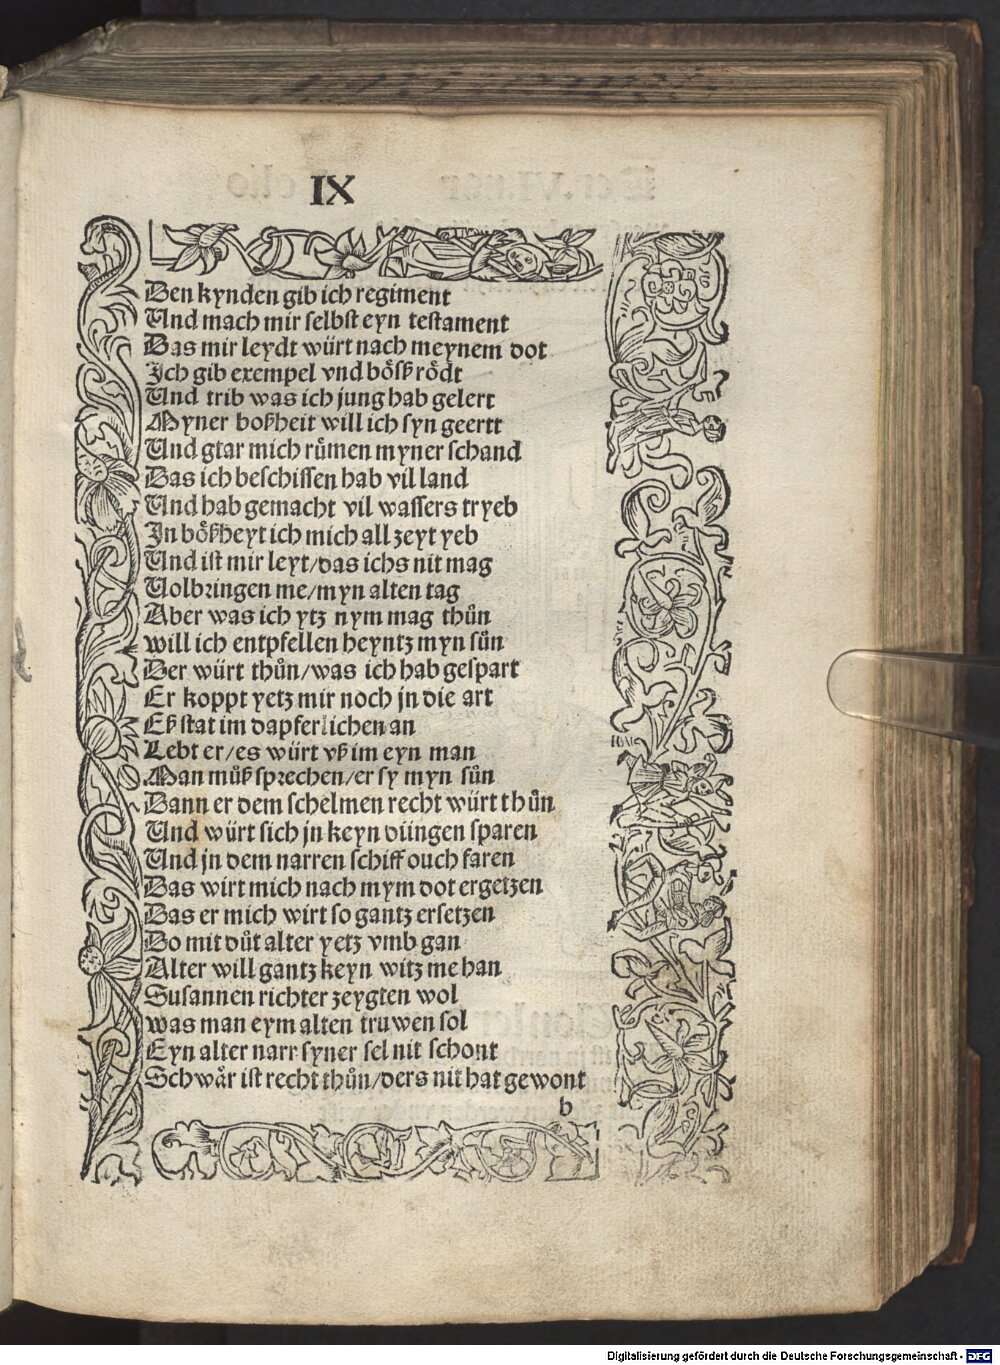 IX
Den kynden gib ich regiment
Und mach mir selbst eyn testament
Das mir leydt würt nach meynem dot
Ich gib exempel vnd bőß rődt
Und trib was ich jung hab gelert
Myner boßheit will ich syn geertt
Und gtar mich rümen myner schand
Das ich beschissen hab vil land
Und hab gemacht vil wassers tryeb
In bößheyt ich mich all zeyt yeb
Und ist mir leyt/das ichs nit mag
Uolbringen me/myn alten tag
Aber was ich ytz nym mag thůn
will ich entpfellen heyntz myn sůn
Der würt thůn/was ich hab gespart
Er koppt yetz mir noch jn die art
Eß stat im dapferlichen an
Lebt er/es würt vß im eyn man
Man můß sprechen/er sy myn sůn
Dann er dem schelmen recht würt thůn
Und würt sich jn keyn düngen sparen
Und jn dem narren schiff ouch faren
Das wirt mich nach mym dot ergetzen
Das er mich wirt so gantz ersetzen
Do mit důt alter yetz vmb gan
Alter will gantz keyn witz me han
Susannen richter zeygten wol
was man eym alten truwen sol
Eyn alter narr syner sel nit schont
Schwär ist recht thůn/ders nit hat gewont
b
Digitalisierung gefördert durch die Deutsche Forschungsgemeinschaft - DFG